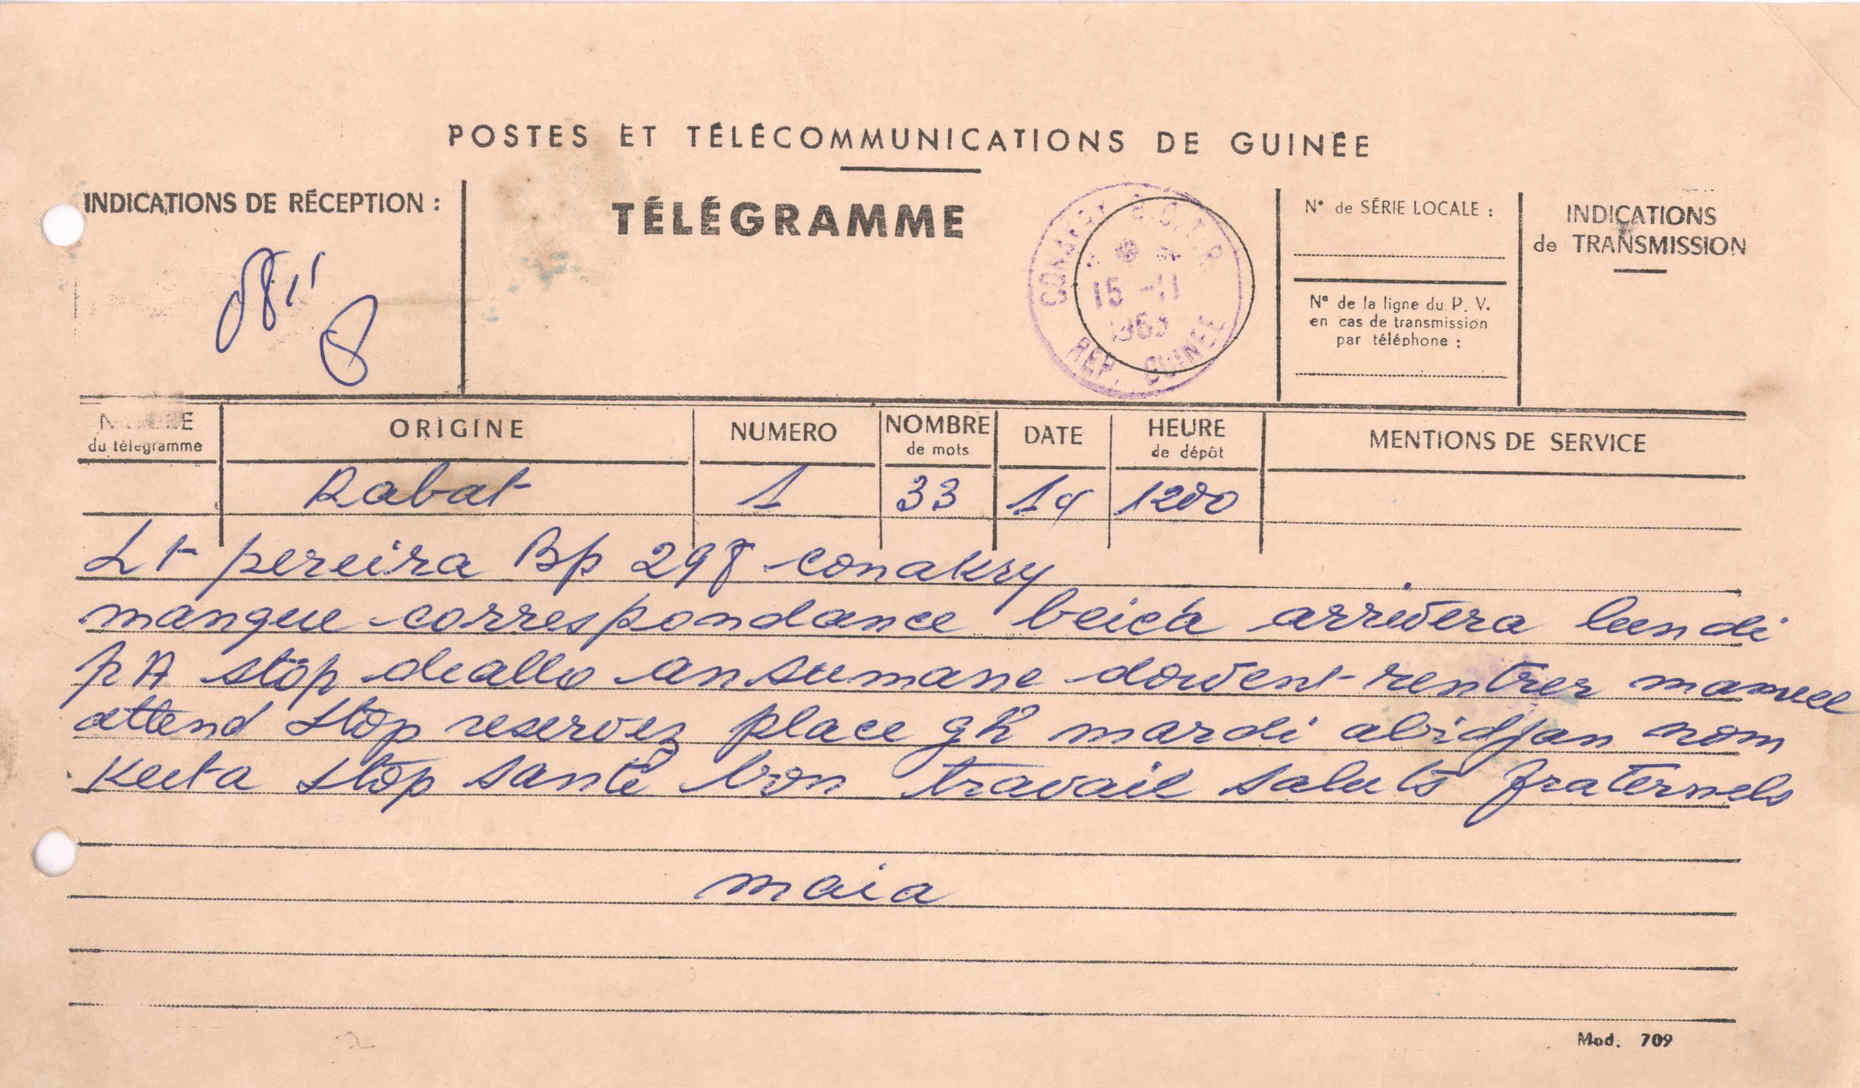 POSTES ET TÉLÉCOMMUNICATIONS DE GUINÉE
INDICATIONS DE RÉCEPTION :
TÉLÉGRAMME
CONAKRY
15 -11
1963
REP. GUINEE
N° de SÉRIE LOCALE :
N° de la ligne du P. V.
en cas de transmission
par téléphone :
INDICATIONS
de TRANSMISSION
du télégramme
ORIGINE
NUMERO
NOMBRE
de mots
DATE
HEURE
de dépôt
MENTIONS DE SERVICE
Rabat 1 33 14 1200
Lt pereira Bp 298 conakry
manque correspondance arrivera lundi
pA stop diallo ansumane doivent rentrer manuel
attend stop reservez place gh mardi abidjan nom
Keita stop santé bon travail saluts fraternels
maia
Mod. 709